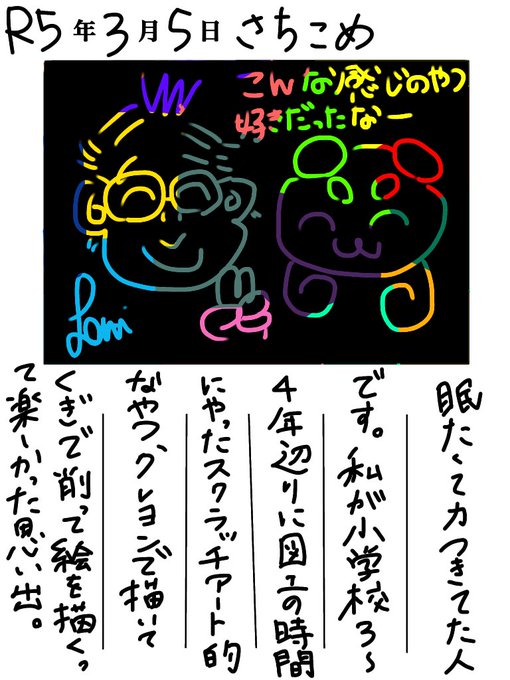 R5年3月5日 さちこめ
こんな感じのやつ
好きだったなー
Lomi
眠たくて力つきてた人
です。私が小学校3～
4年辺りに図工の時間
にやったスクラッチアート的
なやつ、クレヨンで描いて
くぎで削って絵を描くっ
て楽しかった思い出。